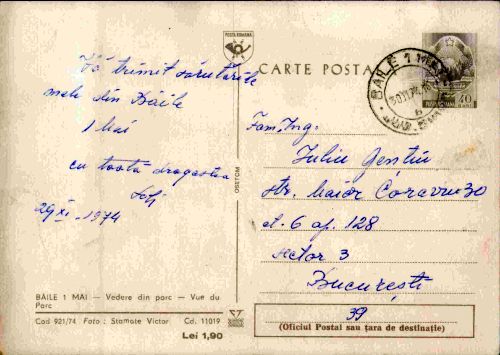 POSTA ROMANA
CARTE POSTALĂ
BĂILE 1 MAI
40
Vă trimit sărutările
mele din Băile
1 Mai
cu toată dragostea
29 XI. 1974
Fam. Ing.
Iuliu Gentiu
str. Maior Coravu 30
et. 6 ap. 128
sector 3
București
39
(Oficiul Postal sau țara de destinație)
OSETCM
BĂILE 1 MAI — Vedere din parc — Vue du
Parc
Cod 921/74 Foto : Stamate Victor Cd. 11019
Lei 1,90